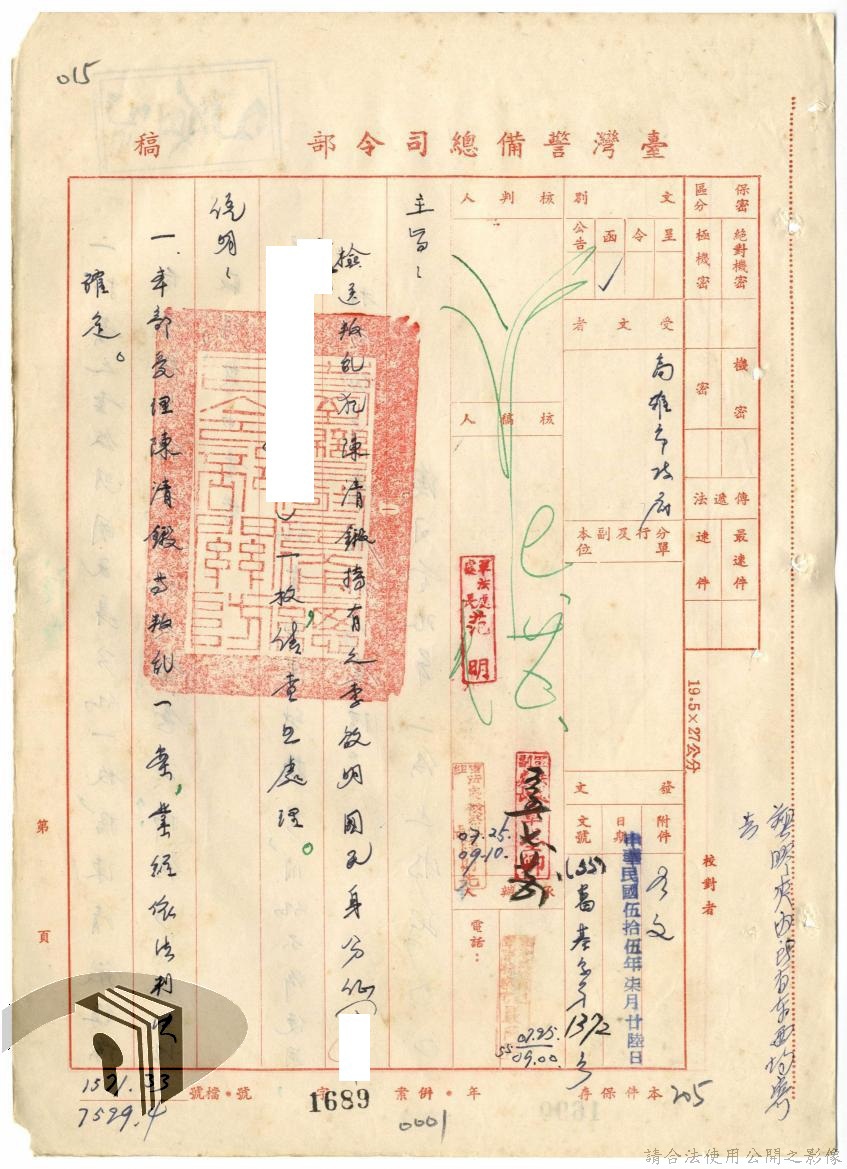 015
臺灣警備總司令部 稿
保密區分
絕對機密
極機密
機密
密
傳遞法
最速件
速件
19.5×27公分
校對者
文別
呈
令
函
公告
✓
受文者
高雄市政府
分行及副本單位
發文
附件
如文
日期
中華民國伍拾伍年柒月廿陸日
文號
(55)
字第1372號
核判人
核稿人
承辦人
電話：
軍法處處長 范明
07.25.
09.10.
07.25.
55 09.00.
主旨：
檢送叛亂犯陳清鍛持有之李啟明國民身分證(
)一枚，請查照處理。
說明：
一、本部受理陳清鍛等叛亂一案，業經依法判決
確定。
二
第 頁
1571.33
7529.4
檔號
1689
字
0001
年
併案
本件保存
205
請合法使用公開之影像